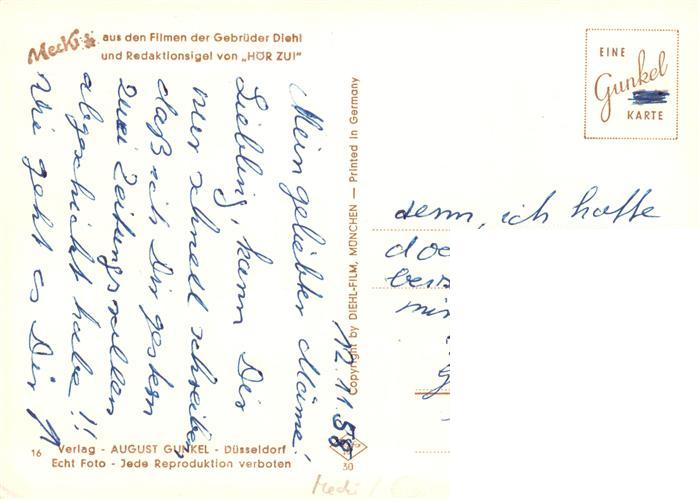 Mecki
aus den Filmen der Gebrüder Diehl
und Redaktionsigel von „HÖR ZU!"
EINE
Gunkel
KARTE
12.11.58
Mein geliebter
Liebling, kann Dir
nur schnell schreiben,
daß ich Dir gestern
zwei Zeitungsrollen
abgeschickt habe!!
Wie geht es Dir
denn, ich hoffe
Copyright by DIEHL-FILM, MÜNCHEN — Printed in Germany
16
Verlag - AUGUST GUNKEL - Düsseldorf
Echt Foto - Jede Reproduktion verboten
30
Mecki